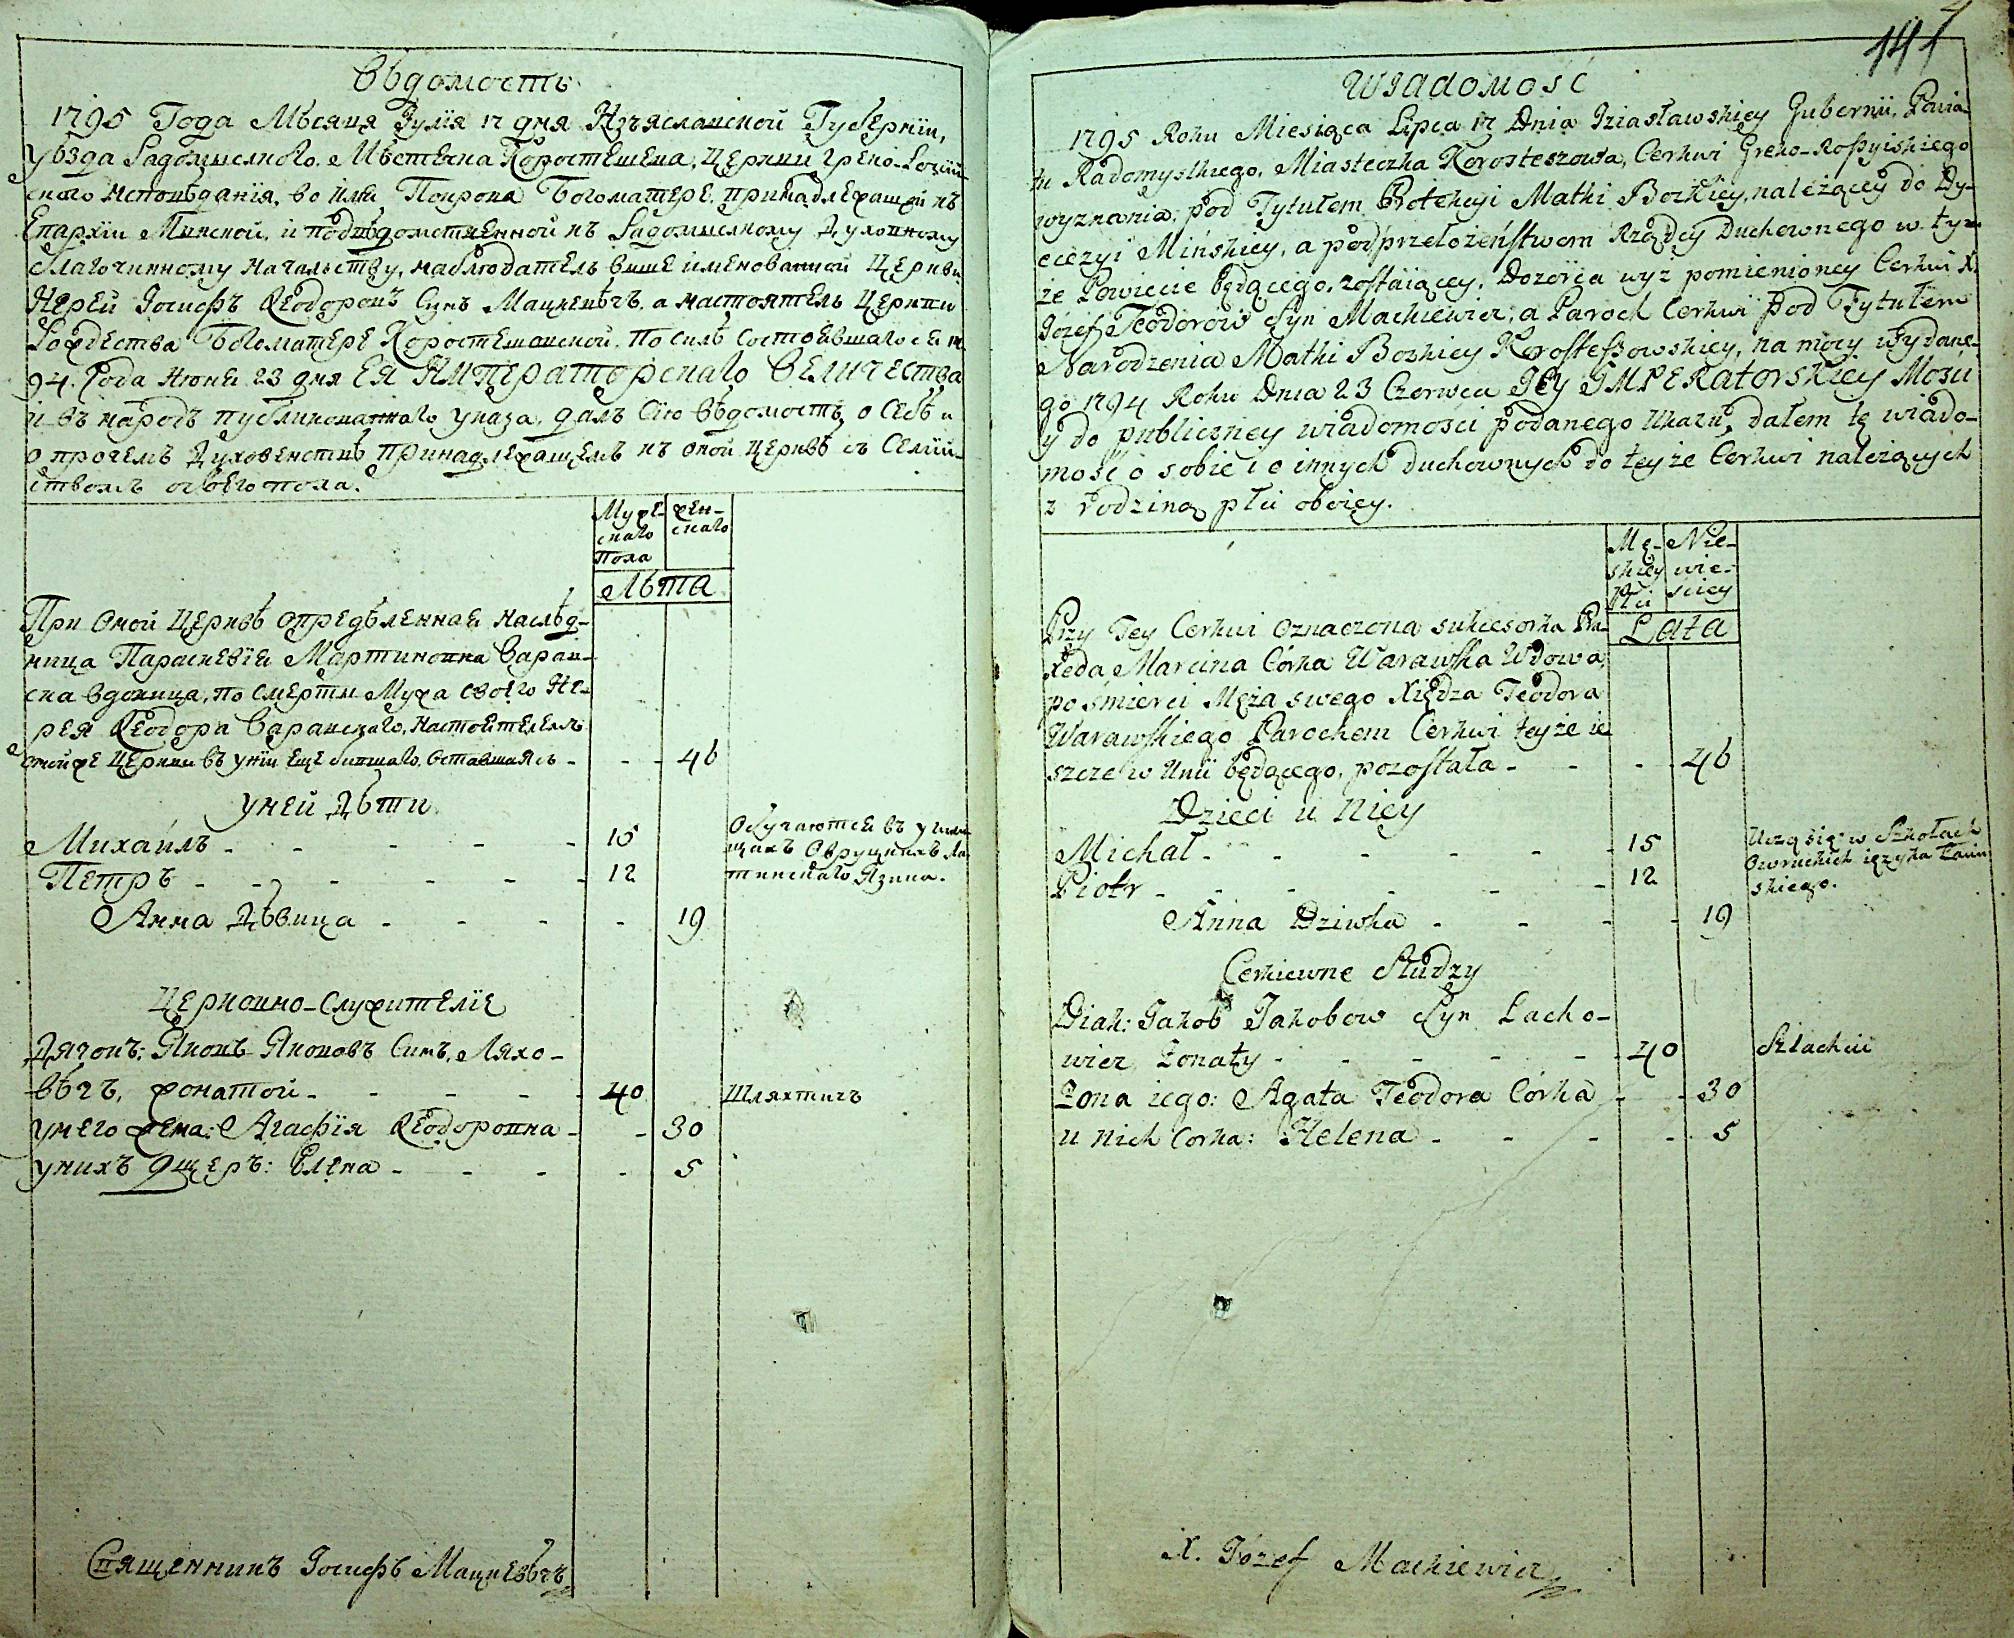 Вѣдомость
1795 Года Мѣсяца Іуліа 17 дня Изъяславской Губерніи,
уѣзда Радомысльского, Мѣстечка Коростешева, Церкви Греко-Россій-
скаго исповѣданія, во имя Покрова Богоматере, принадлежащей къ
Епархіи Минской, и подвѣдомственной къ Радомыслкому Духовному
благочинному начальству, наблюдатель више именованной Церкви
Иерей Іосифъ Ѳеодоровъ Синъ Мацкевѣчъ, а настоятель Церкви
Рождества Богоматере Коростешовской. По силѣ состоявшагося 17
94. Года Июня 23 дня ЕЯ ИМПЕраторскаго ВЕЛИЧЕства
и въ народъ публикованнаго указа, далъ сію вѣдомость о себѣ и
о прочемъ Духовенствѣ принадлежащемъ къ оной Церквѣ съ Семѣй-
ствомъ обоего пола.
Муже-
скаго
Пола
жен-
скаго
Лѣта
При Оной Церквѣ опредѣленная наслѣд-
ница Параскевія Мартиновна Варав-
ска вдовица, по смерти Мужа своего Ие-
рея Ѳеодора Варавскаго, настоятелемъ
оной же Церкви въ уніи еще бившаго, оставшаясь - - - 46
у ней Дѣти
Михаилъ - - - - - 15
Обучаются въ учили-
щахъ Овруцкихъ Ла-
тинскаго Язика.
Петръ - - - - - - 12
Анна Дѣвица - - - - 19
Церковно-Служителіе
Дячокъ: Яковъ Якововъ Синъ, Ляхо-
вѣчъ, жонатой - - - - - 40 Шляхтичъ
у него жена: Агафія Ѳеодоровна - - 30
у нихъ Дщерь: Елена - - - - 5
Священникъ Іосифъ Мацкевѣчъ
141
4
Wiadomość
1795 Roku Miesiąca Lipca 17 Dnia Iziasławskiey Gubernii, Powia-
tu Radomyslkiego, Miasteczka Korosteszowa, Cerkwi Greko-Roſsyiskiego
wyznania, pod Tytułem Protekcyi Matki Bozkiey, należącey do Dy-
ecezyi Mińskiey, a pod przełożeńſtwem Rządcy Duchownego w tym-
że Powiecie będącego, zoſtaiącey, Dozorca wyż pomienioney Cerkwi X.
Józef Teodorow Syn Mackiewicz, a Paroch Cerkwi pod Tytułem
Narodzenia Matki Bozkiey Koroſteſzowskiey, na mocy wydane-
go 1794 Roku Dnia 23 Czerwca JEY IMPERatorskiey Mości
y do publiczney wiadomości podanego Ukazu, dałem tę wiado-
mość o sobie i o innych duchownych do teyże Cerkwi należących
z Rodziną płci oboiey.
Mę-
skiey
Płci
Nie-
wie-
sciey
Lata
Przy Tey Cerkwi Oznaczona sukcesorka Pra-
xeda Marcina Córka Warawſka Wdowa,
po śmierci Męża swego Xiędza Teodora
Warawſkiego Parochem Cerkwi teyże ie-
szcze w Unii będącego, pozoſtała - - - - 46
Dzieci u Niey
Michał - - - - - - 15
Uczą się w Szkołach
Owruckich ięzyka Łacin-
skiego.
Piotr - - - - - - 12
Anna Dziwka - - - - 19
Cerkiewne Słudzy
Diak: Jakob Jakobow Syn Lacho-
wicz Żonaty - - - - - - 40 Szlachcic
Żona iego: Agata Teodora Córka - - 30
u nich Corka: Helena - - - - 5
X. Józef Mackiewicz